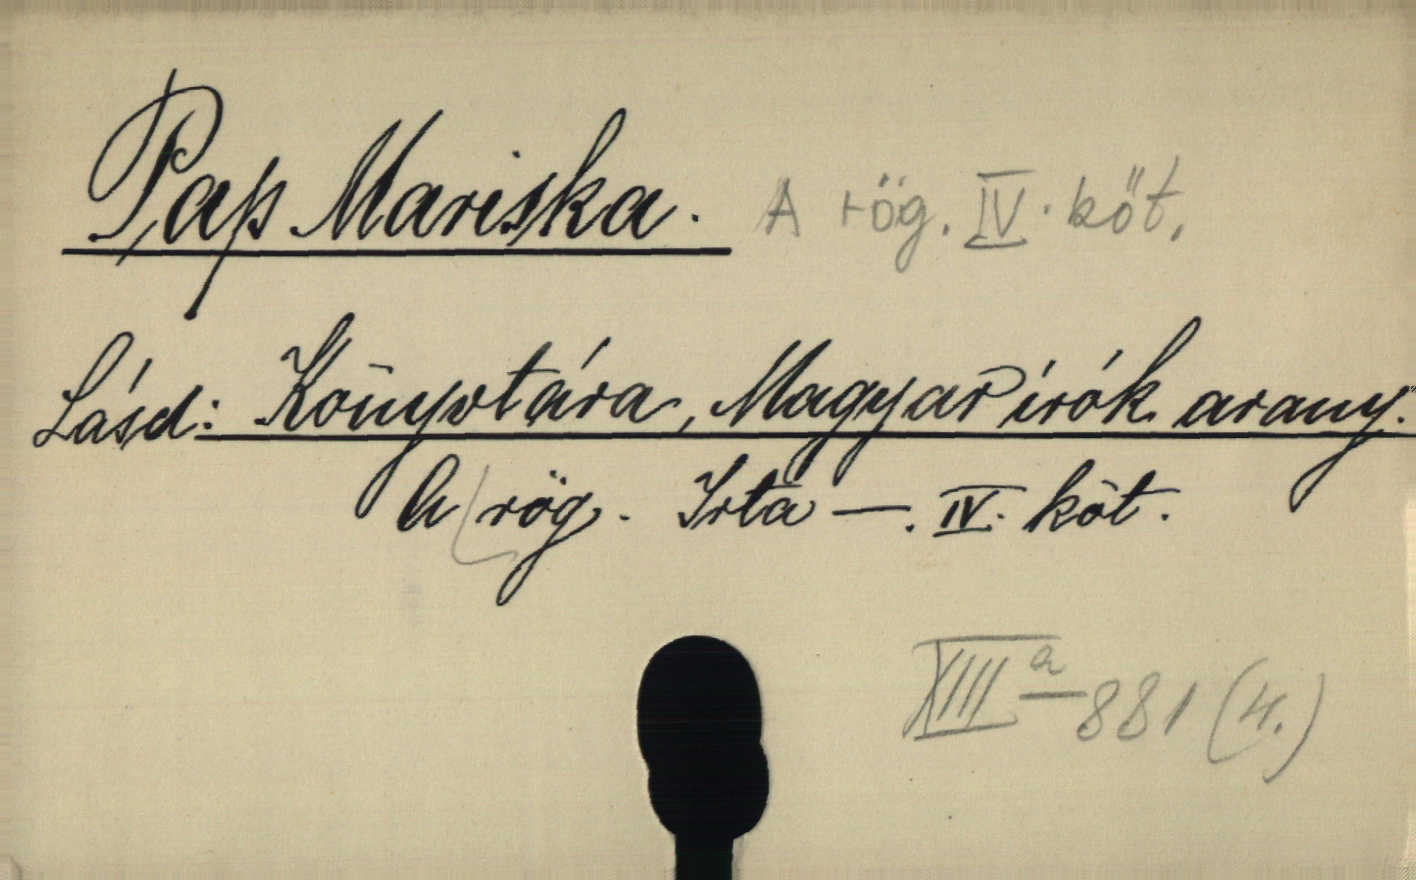 Pap Mariska. A rög. IV. köt.
Lásd: Könyvtára, Magyar írók arany.
A rög. Irta —. IV. köt.
XIII a 881 (4.)